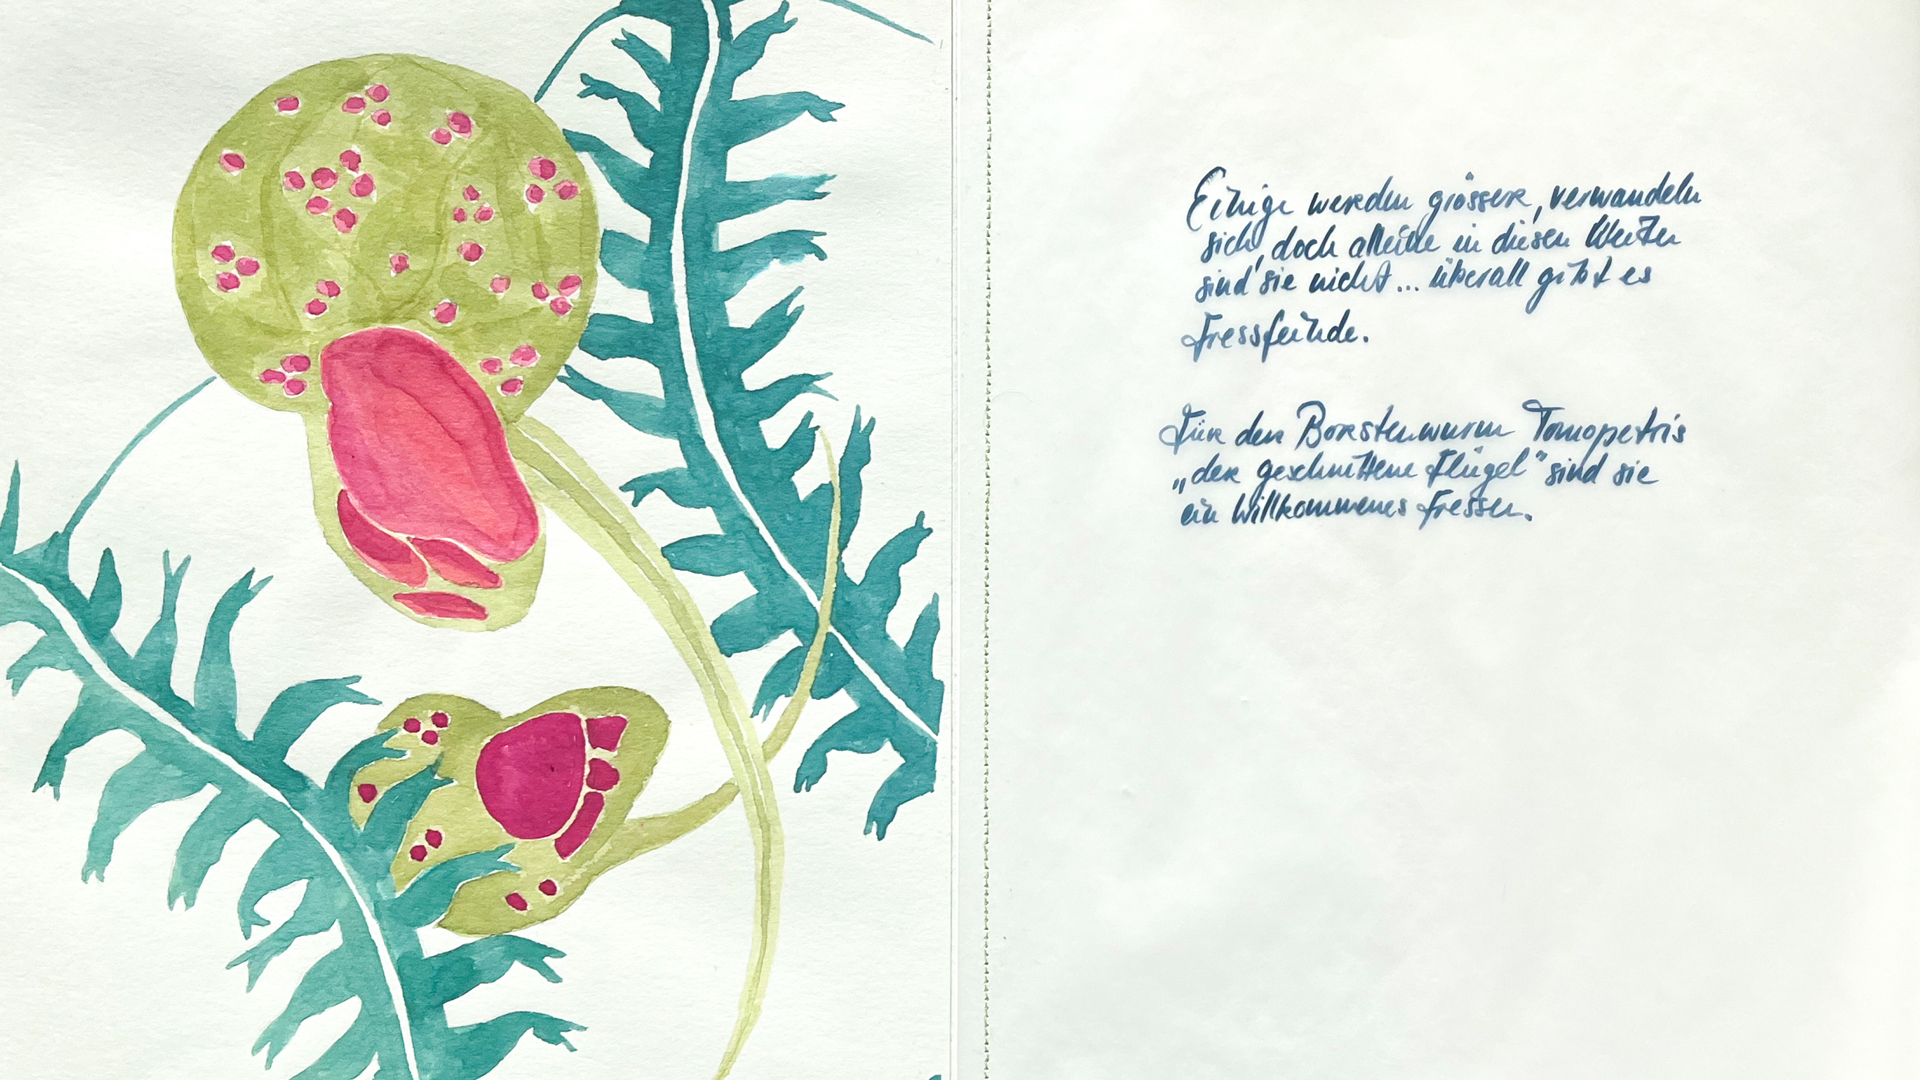 Einige werden grösser, verwandeln
sich, doch alleine in diesen Weiten
sind sie nicht... überall gibt es
Fressfeinde.
Für den Borstenwurm Tomopetris
„der geschnittene Flügel" sind sie
ein willkommenes Fressen.